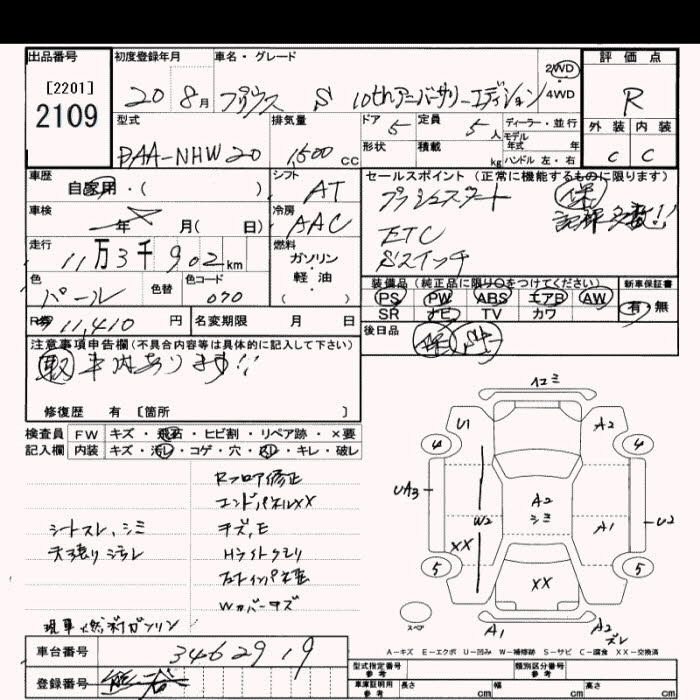 出品番号
[2201]
2109
初度登録年月
20 8月
車名・グレード
プリウス S 10thアニバーサリーエディション
2WD
4WD
評価点
R
外装 内装
C C
型式
DAA-NHW20
排気量
1,500 cc
ドア 5
定員 5人
形状
積載 kg
ディーラー・並行
モデル
年式 年
ハンドル 左・右
車歴
自家用・( )
シフト
AT
車検
年 月( 日)
冷房
AAC
走行
11万3千902km
燃料
ガソリン
・
軽油
色
パール
色替
色コード
070
R 11,410 円
名変期限 月 日
セールスポイント (正常に機能するものに限ります)
プッシュスタート
保
記録多数!!
ETC
Sスイッチ
装備品(純正品に限り○をつけてください)
PS PW ABS エアB AW
SR ナビ TV カワ
新車保証書
有・無
後日品
注意事項申告欄(不具合内容等は具体的に記入して下さい)
取 車内あります!!
修復歴 有 [箇所 ]
検査員 FW キズ・飛石・ヒビ割・リペア跡・×要
記入欄 内装 キズ・汚レ・コゲ・穴・凹・キレ・破レ
Rフロア修正
エンドパネルXX
キズ,E
Hライトクモリ
Wカバーキズ
シートスレ、シミ
天張り汚レ
現車燃料ガソリン
コミ
U1
A2
4
4
UA3
W2
A2
シミ
A1
U2
XX
5
5
XX
スペア
A1
A2
ズレ
A−キズ E−エクボ U−凹み W−補修跡 S−サビ C−腐食 XX−交換済
車台番号
3462919
登録番号
型式指定番号
参考
類別区分番号
参考
車庫証明用
参考
長さ cm
幅 cm
高さ cm